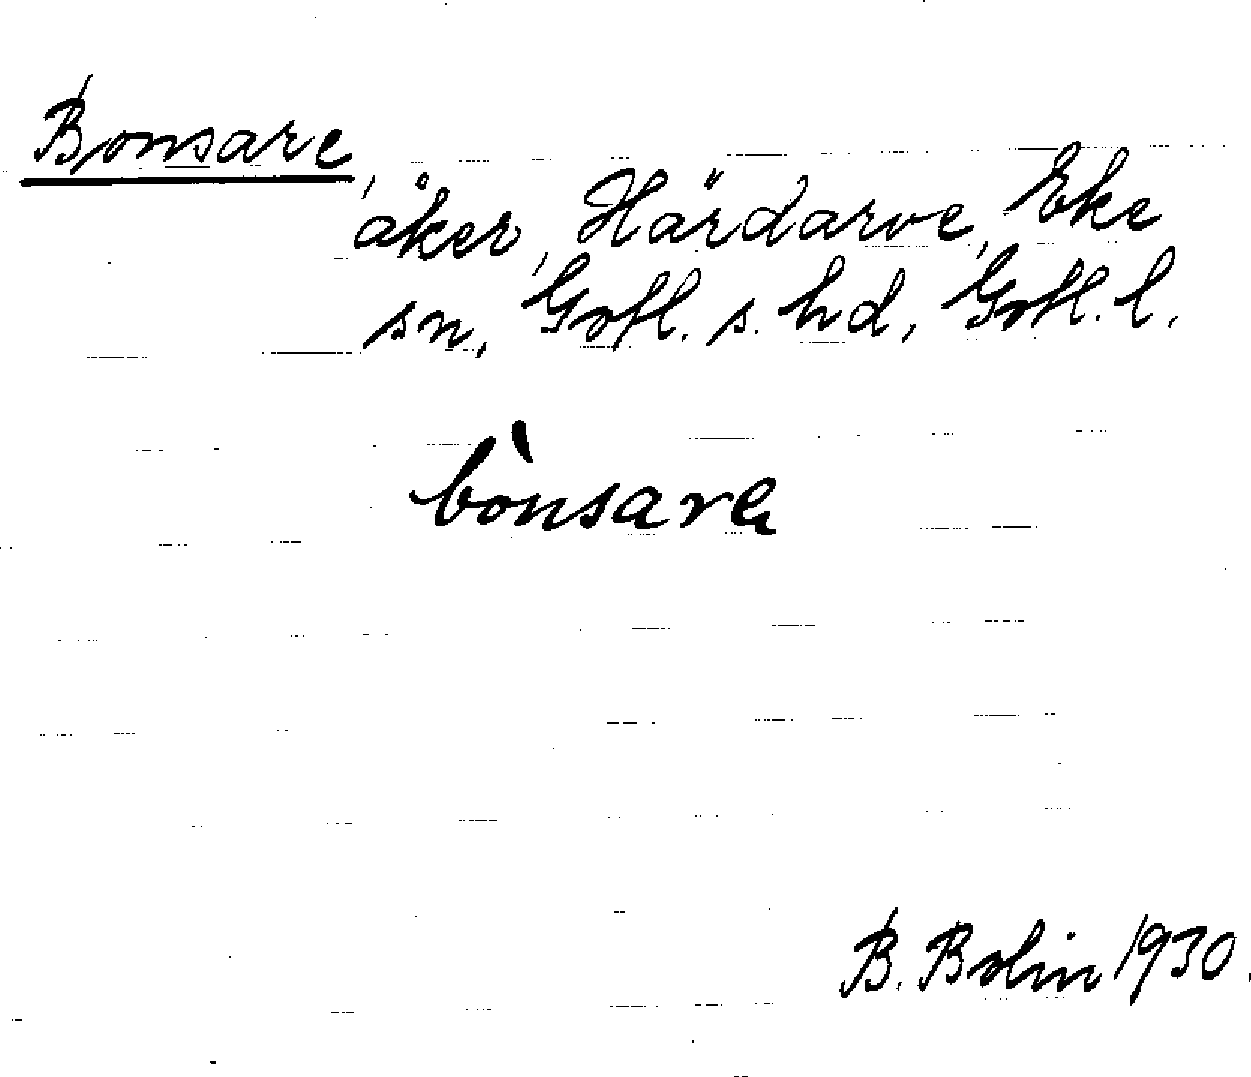 Bonsare,
åker, Härdarve, Eke
sn, Gotl. s. hd, Gotl. l.
bònsara
B. Bolin 1930.